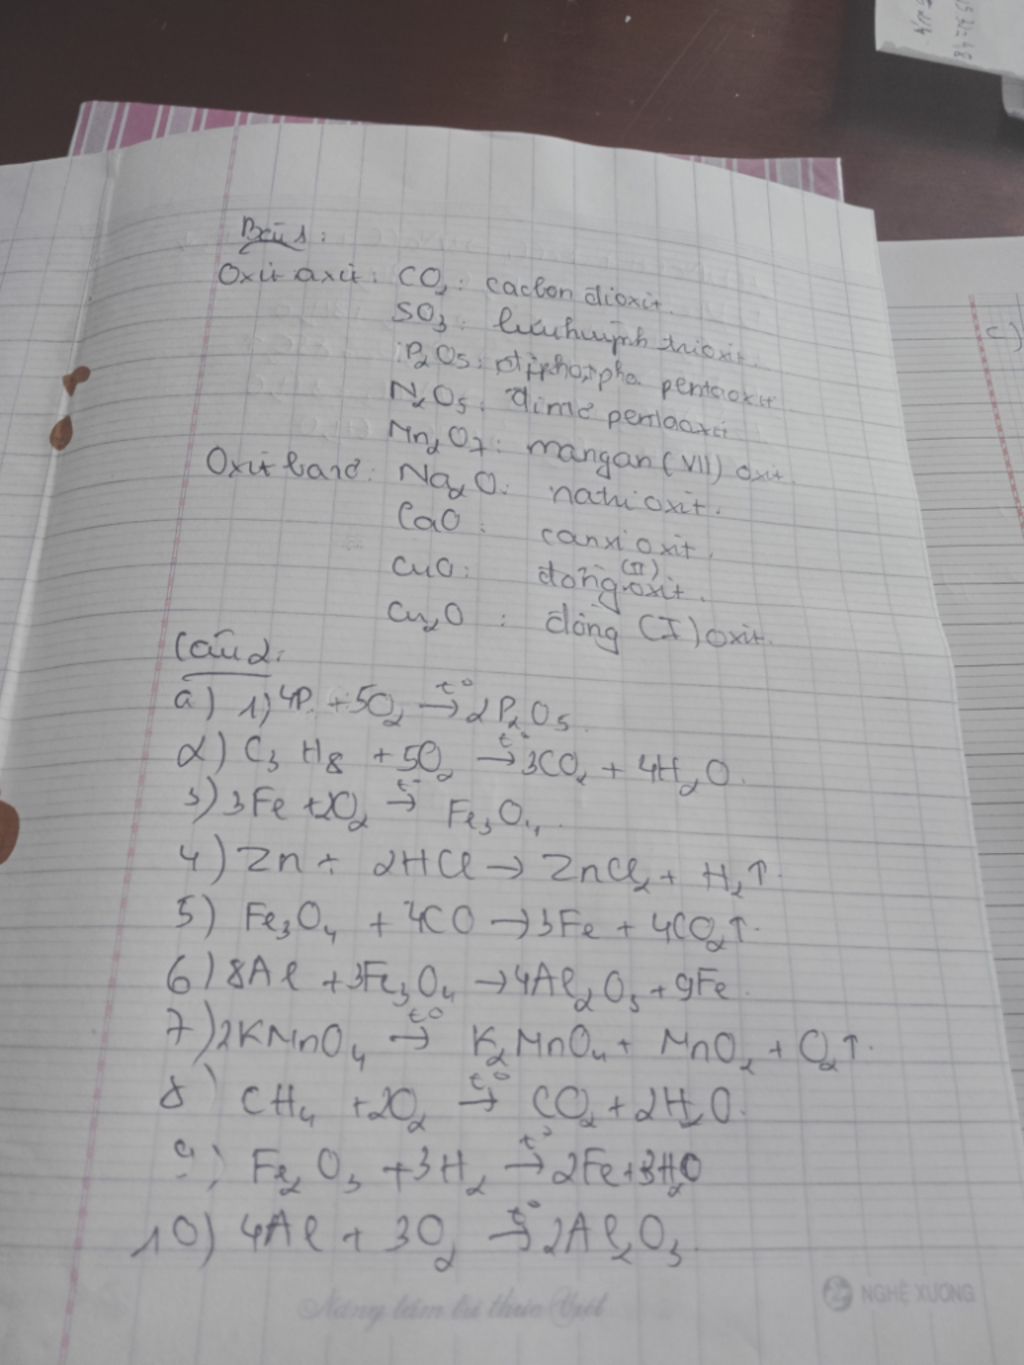 Bài 1:
Oxit axit: CO2: cacbon dioxit.
SO3: lưu huỳnh trioxit.
P2O5: điphotpho pentaoxit
N2O5: đinitơ pentaoxit
Mn2O7: mangan (VII) oxit.
Oxit bazơ: Na2O: natri oxit.
CaO: canxi oxit.
CuO: đồng (II) oxit.
Cu2O: đồng (I) oxit.
Câu 2:
a) 1) 4P + 5O2 →t° 2P2O5.
2) C3H8 + 5O2 →t° 3CO2 + 4H2O.
3) 3Fe + 2O2 →t° Fe3O4.
4) Zn + 2HCl → ZnCl2 + H2↑.
5) Fe3O4 + 4CO → 3Fe + 4CO2↑.
6) 8Al + 3Fe3O4 → 4Al2O3 + 9Fe.
7) 2KMnO4 →t° K2MnO4 + MnO2 + O2↑.
8) CH4 + 2O2 →t° CO2 + 2H2O.
9) Fe2O3 + 3H2 →t° 2Fe + 3H2O
10) 4Al + 3O2 →t° 2Al2O3.
c)
NGHÊ XƯƠNG